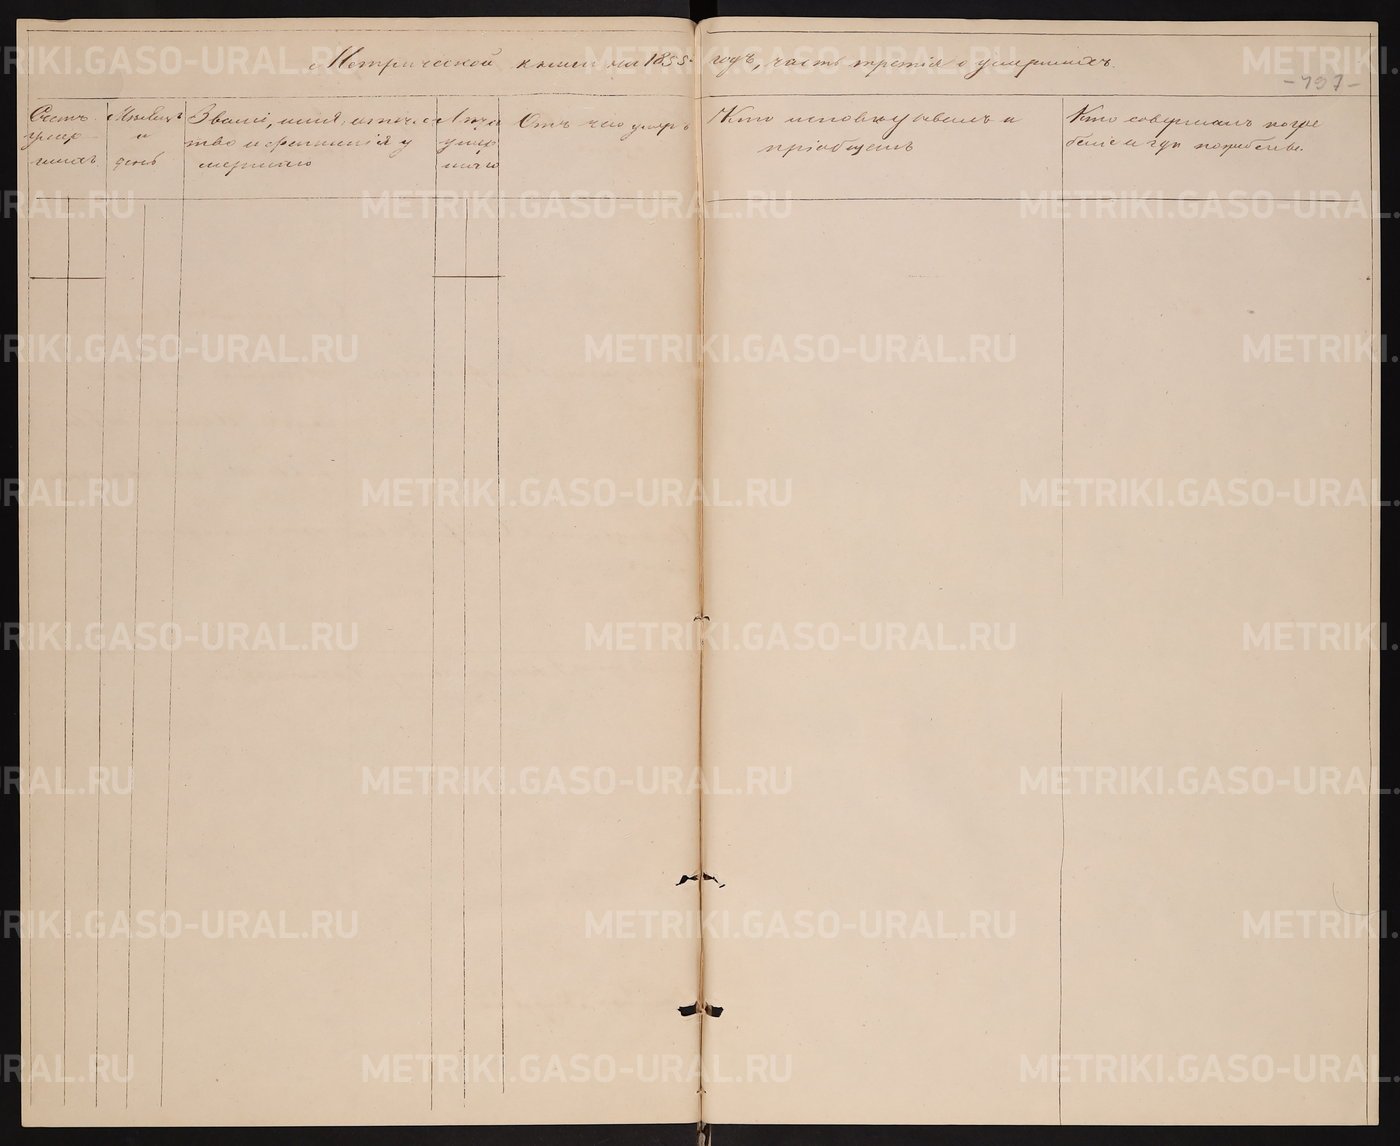 Метрической книги на 1855 годъ, часть третія о умершихъ.
-197-
Счетъ
умер
шихъ
Мѣсяцъ
и
день
Званіе, имя, отчес
тво и фамилія у
мершаго
Лѣта
умер
шаго
Отъ чего умеръ
Кто исповѣдывалъ и
пріобщалъ
Кто совершалъ погре
беніе и гдѣ погребены.
METRIKI.GASO-URAL.RU